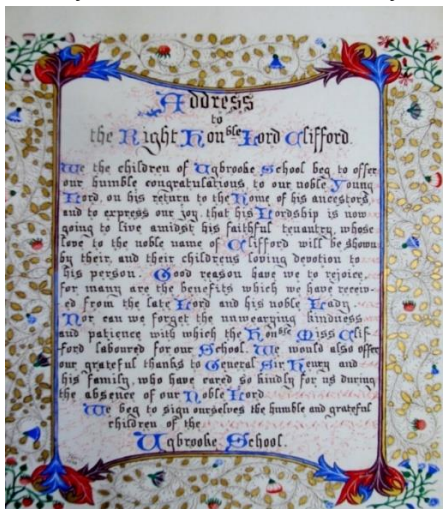 Address
to
the Right Hon^ble Lord Clifford.
We the children of Ugbrooke School beg to offer
our humble congratulations, to our noble Young
Lord, on his return to the Home of his ancestors,
and to express our joy that his Lordship is now
going to live amidst his faithful tenantry, whose
love to the noble name of Clifford will be shown
by their, and their childrens loving devotion to
his person. Good reason have we to rejoice,
for many are the benefits which we have receiv-
ed from the late Lord and his noble Lady.
Nor can we forget the unwearying kindness
and patience with which the Hon^ble Miss Clif-
-ford laboured for our School. We would also offer
our grateful thanks to General Sir Henry and
his family, who have cared so kindly for us during
the absence of our Noble Lord
We beg to sign ourselves the humble and grateful
children of the
Ugbrooke School.